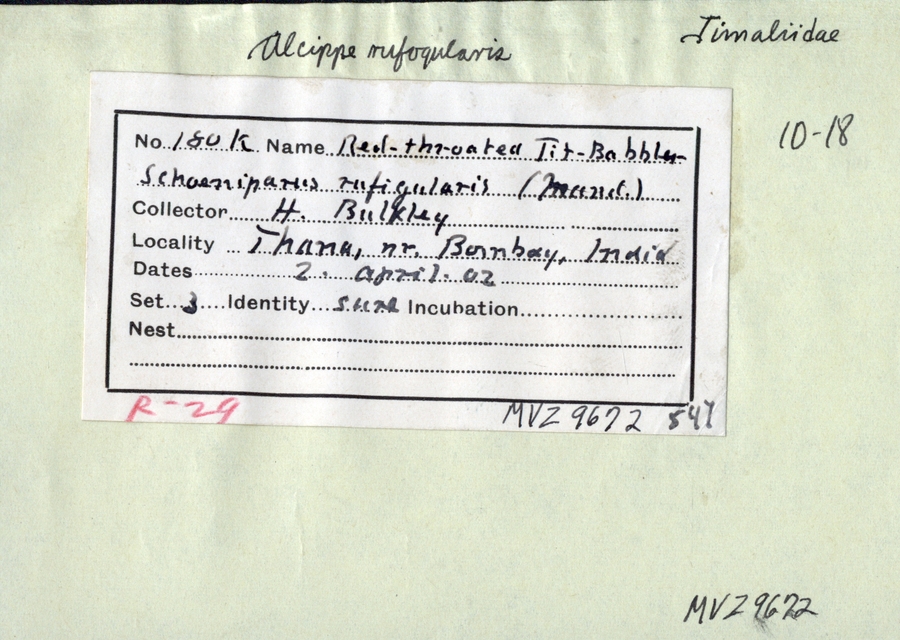 Timaliidae
Alcippe rufogularis
10-18
No. 180 K Name Red-throated Tit-Babbler
Schoeniparus rufigularis (Mand.)
Collector H. Bulkley
Locality Thana, nr. Bombay, India
Dates 2. april. 02
Set 3 Identity sure Incubation
Nest
R-29
MVZ 9672 547
MVZ 9672